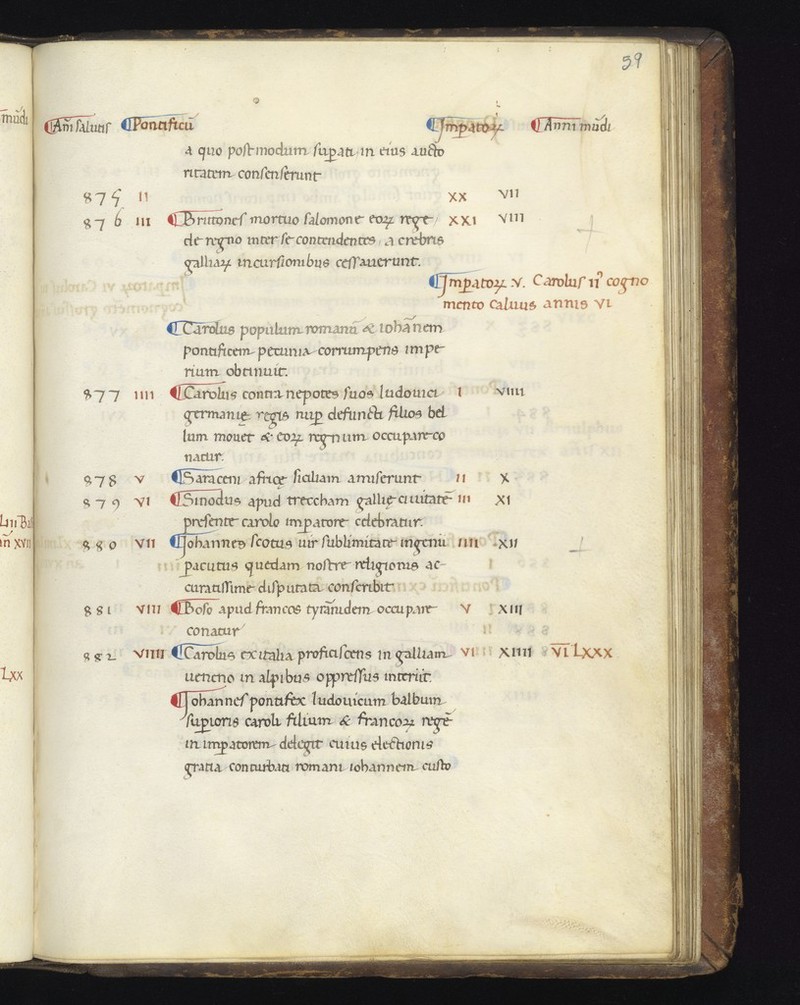 59
mūdi
Anī salutis Pontificū Impatoꝝ Anni mūdi
a quo postmodum supati in eius aucto
ritatem consenserunt
875 II XX VII
876 III Britones mortuo salomone eoꝝ rege XXI VIII
de regno inter se contendentes, a crebris
galliaꝝ incursionibus cessauerunt.
Impatoꝝ V. Carolus II cogno
mento caluus annis VI
Carolus populum romanū & iohānem
pontificem pecunia corrumpens impe
rium obtinuit.
877 IIII Carolus contra nepotes suos ludouici I VIIII
germanię regis nup defuncti filios bel
lum mouet & eoꝝ regnum occupare co
natur.
878 V Saraceni africę siciliam amiserunt II X
879 VI Sinodus apud treccham gallię ciuitatē III XI
presente carolo impatore celebratur.
880 VII Johannes scotus uir sublimitate ingenii IIII XII
pacutus quedam nostre religionis ac-
curatissime disputata conscribit
881 VIII Boso apud francos tyrānidem occupare V XIII
conatur
882 VIIII Carolus ex italia proficiscens in galliam VI XIIII VI LXXX
ueneno in alpibus oppressus interiit.
Johannes pontifex ludouicum balbum
supioris caroli filium & francoꝝ regē
in impatorem delegit cuius electionis
gratia conturbati romani iohannem custo
LXX